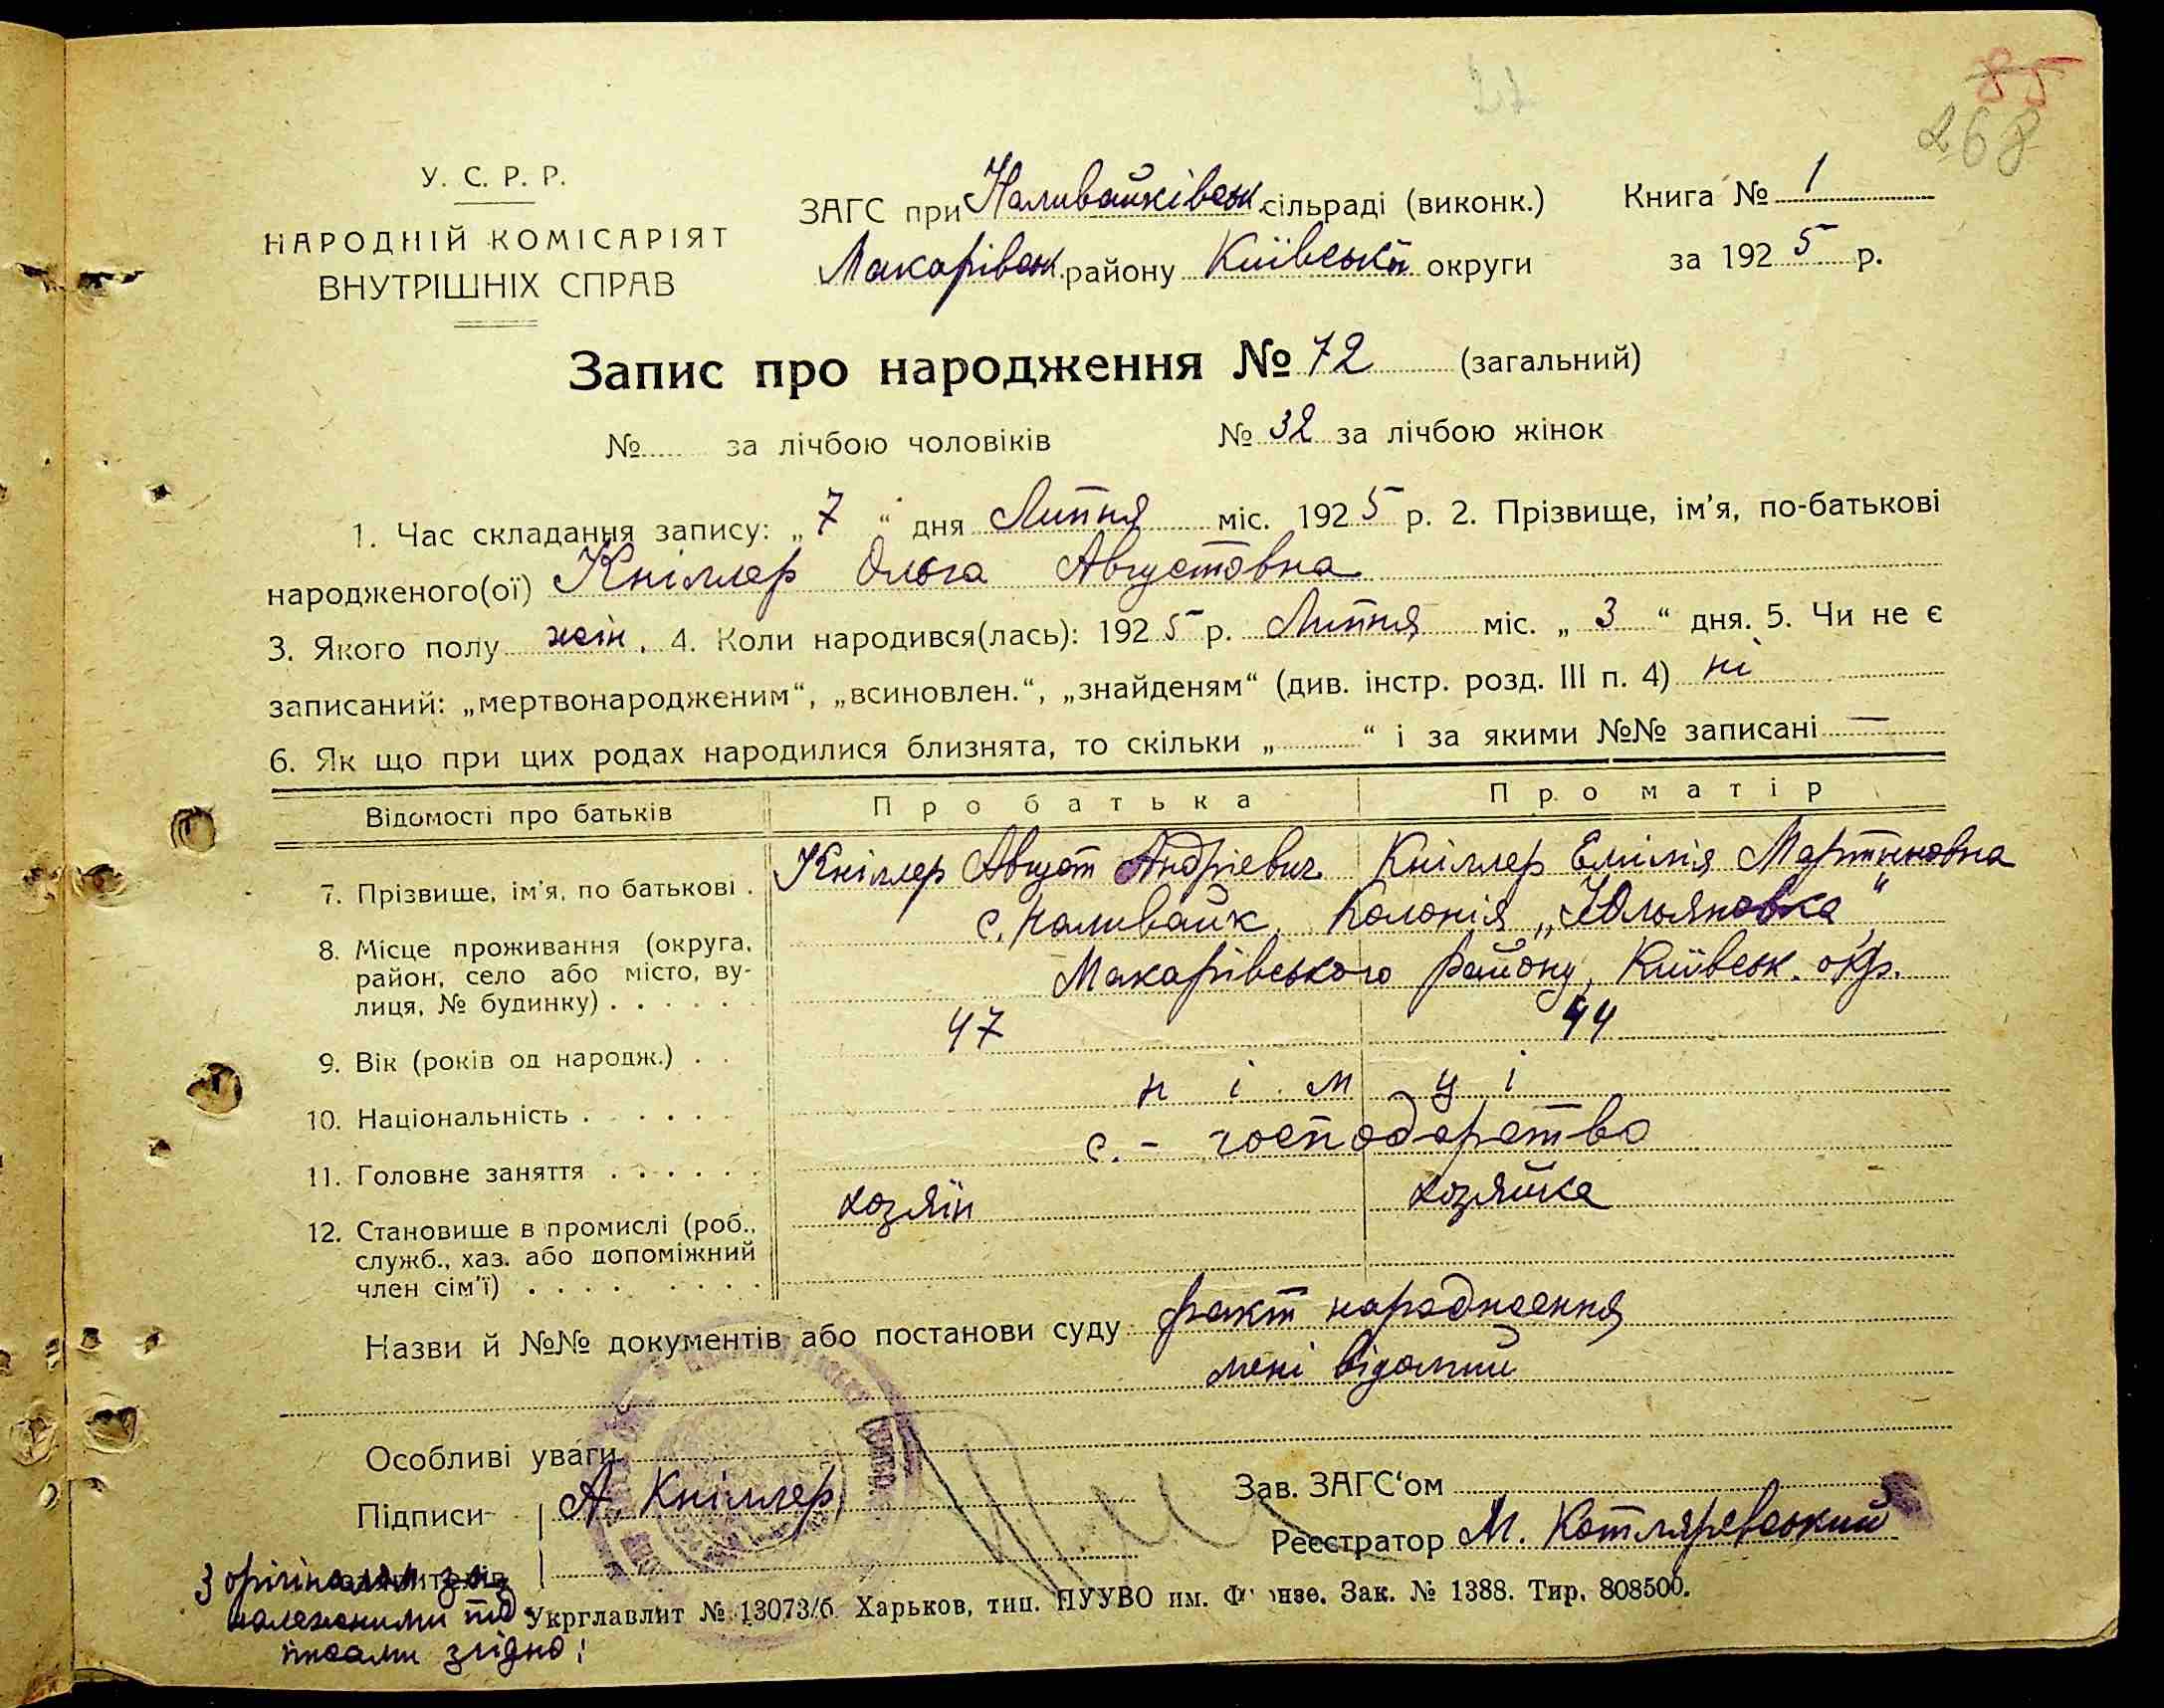 27
85
268
У. С. Р. Р.
НАРОДНІЙ КОМІСАРІЯТ
ВНУТРІШНІХ СПРАВ
ЗАГС при Наливайківськ. сільраді (виконк.)
Макарівськ. району Київської округи
Книга № 1
за 1925 р.
Запис про народження № 72 (загальний)
№ за лічбою чоловіків № 32 за лічбою жінок
1. Час складання запису: „ 7 “ дня Липня міс. 1925 р. 2. Прізвище, ім’я, по-батькові
народженого(ої) Кніллер Ольга Августовна
3. Якого полу жін. 4. Коли народився(лась): 1925 р. Липня міс. „ 3 “ дня. 5. Чи не є
записаний: „мертвонародженим“, „всиновлен.“, „знайденям“ (див. інстр. розд. III п. 4) ні
6. Як що при цих родах народилися близнята, то скільки „ “ і за якими №№ записані —
Відомості про батьків Про батька Про матір
7. Прізвище, ім’я, по батькові . Кніллер Август Андріевич Кніллер Емілія Мартиновна
8. Місце проживання (округа, с. Наливайк. Колонія „Юльяновка“
район, село або місто, ву- Макарівського району, Київськ. окр.
лиця, № будинку) . . . . . .
9. Вік (років од народж.) . . 47 44
10. Національність . . . . . . німці
11. Головне заняття . . . . . . с.-господарство
12. Становище в промислі (роб., хозяїн хозяйка
служб., хаз. або допоміжний
член сім’ї) . . . . . . . .
Назви й №№ документів або постанови суду факт народження
мені відомий
Особливі уваги
Підписи А. Кніллер
Зав. ЗАГС‘ом
Реєстратор М. Котляревський
З орігіналом за
належними під-
писами згідно:
Укрглавліт № 13073/б Харьков, тип. ПУУВО им. Фрунзе. Зак. № 1388. Тир. 808500.